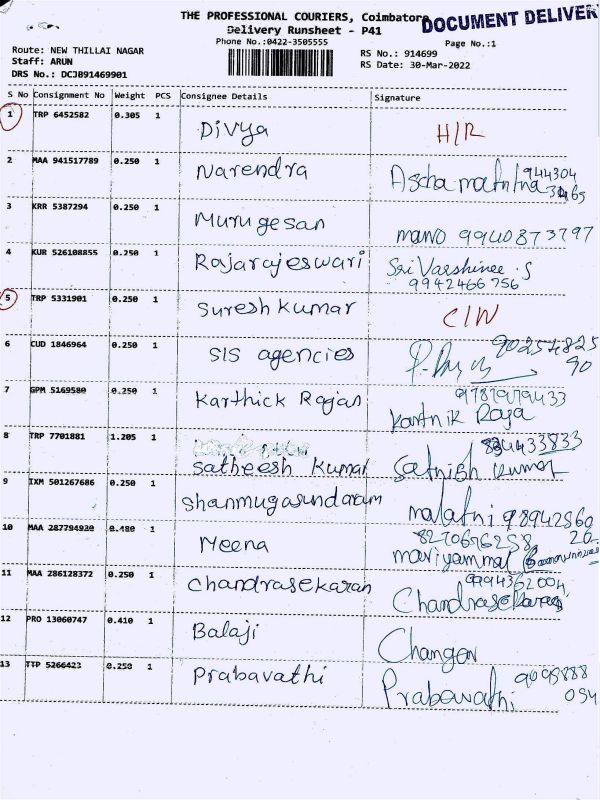 THE PROFESSIONAL COURIERS, Coimbatore
DOCUMENT DELIVER
Delivery Runsheet - P41
Phone No.:0422-3505555
Page No.:1
Route: NEW THILLAI NAGAR
RS No.: 914699
Staff: ARUN
RS Date: 30-Mar-2022
DRS No.: DCJB91469901
S No Consignment No Weight PCS Consignee Details Signature
1 TRP 6452582 0.305 1 Divya H/R
2 MAA 941517789 0.250 1 Narendra 944304
3 KRR 5387294 0.250 1 Murugesan mano 9940873797
4 KUR 526108855 0.250 1 Rajarajeswari Sri Varshinee.S
9942466756
5 TRP 5331901 0.250 1 Suresh kumar C/N
6 CUD 1846964 0.250 1 SIS agencies 90254825
90
7 GPM 5169580 0.250 1 Karthick Rajan 9787979433
Kartnik Raja
8 TRP 7701881 1.205 1 Satheesh Kumar Satnish Kumar
9 IXM 501267686 0.250 1 Shanmugasundaram malatni 98942560
20
10 MAA 287794920 0.480 1 Meena 8270676258
mariyammal
11 MAA 286128372 0.250 1 Chandrasekaran 9994362004
Chandrasekaran
12 PRO 13060747 0.410 1 Balaji Changon
13 TTP 5266423 0.250 1 Prabavathi 9095888
Prabavathi 054